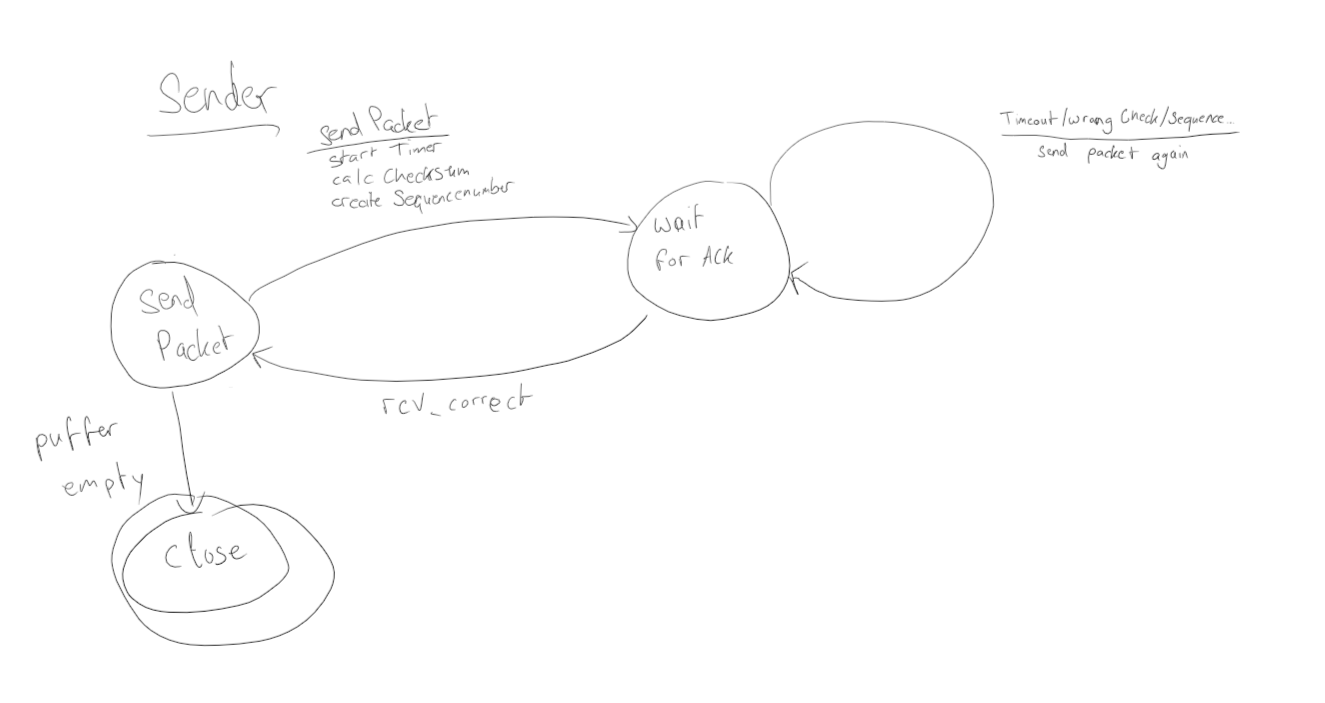 Sender
send Packet
start Timer
calc Checksum
create Sequencenumber
Timeout/wrong Check/Sequence..
send packet again
wait
for Ack
send
Packet
rcv_correct
puffer
empty
close